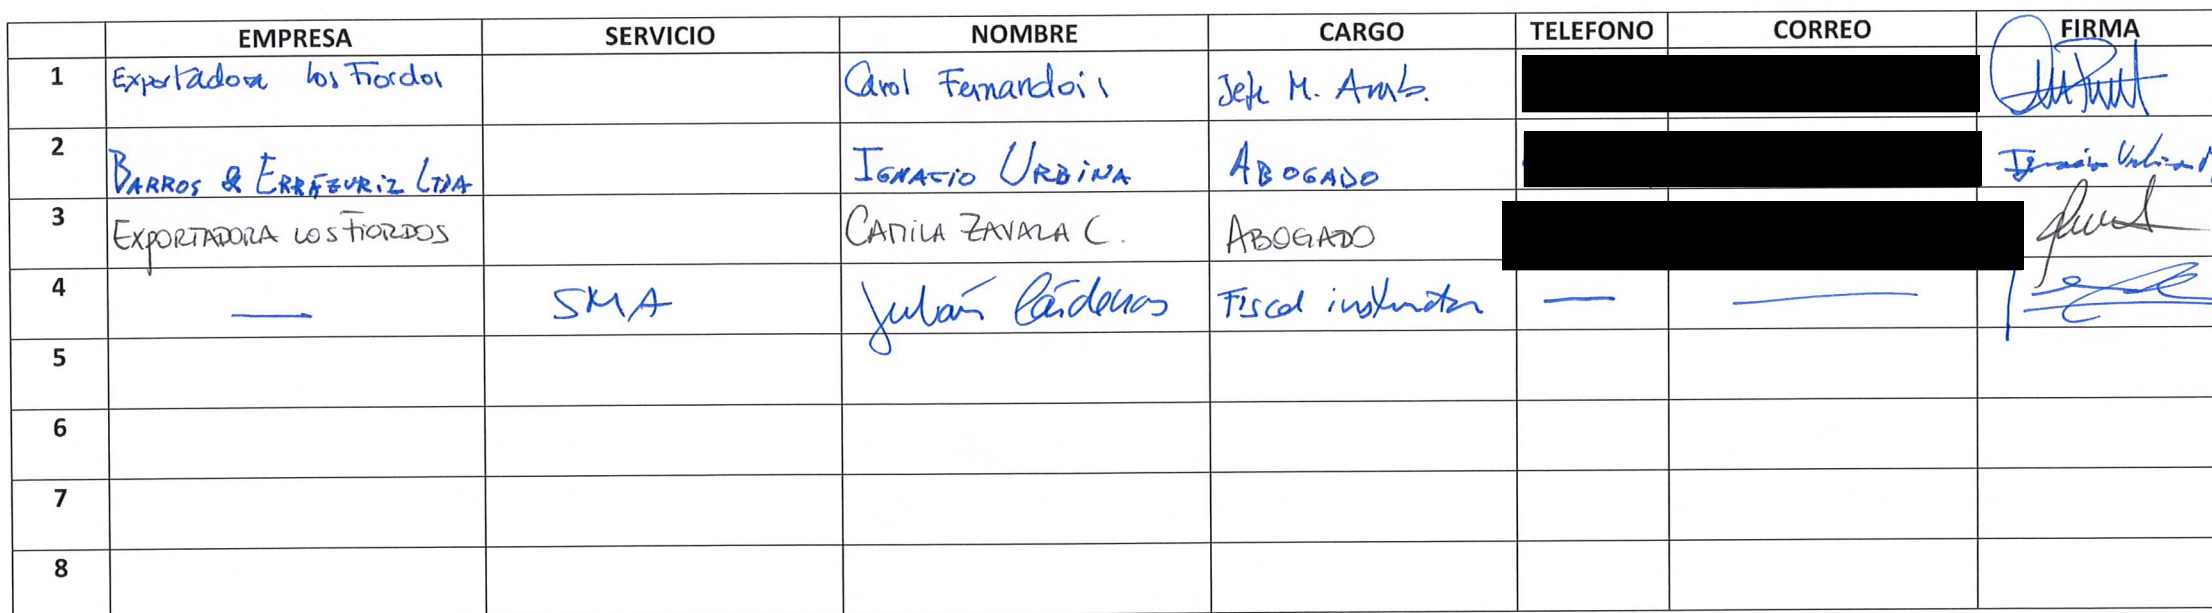 EMPRESA SERVICIO NOMBRE CARGO TELEFONO CORREO FIRMA
1 Exportadora los Fiordos Carol Fernandois Jefe M. Amb.
2 BARROS & ERRÁZURIZ LTDA IGNACIO URBINA ABOGADO
3 EXPORTADORA LOS FIORDOS CAMILA ZAVALA C. ABOGADO
4 — SMA Julián Cárdenas Fiscal instructor — —
5
6
7
8